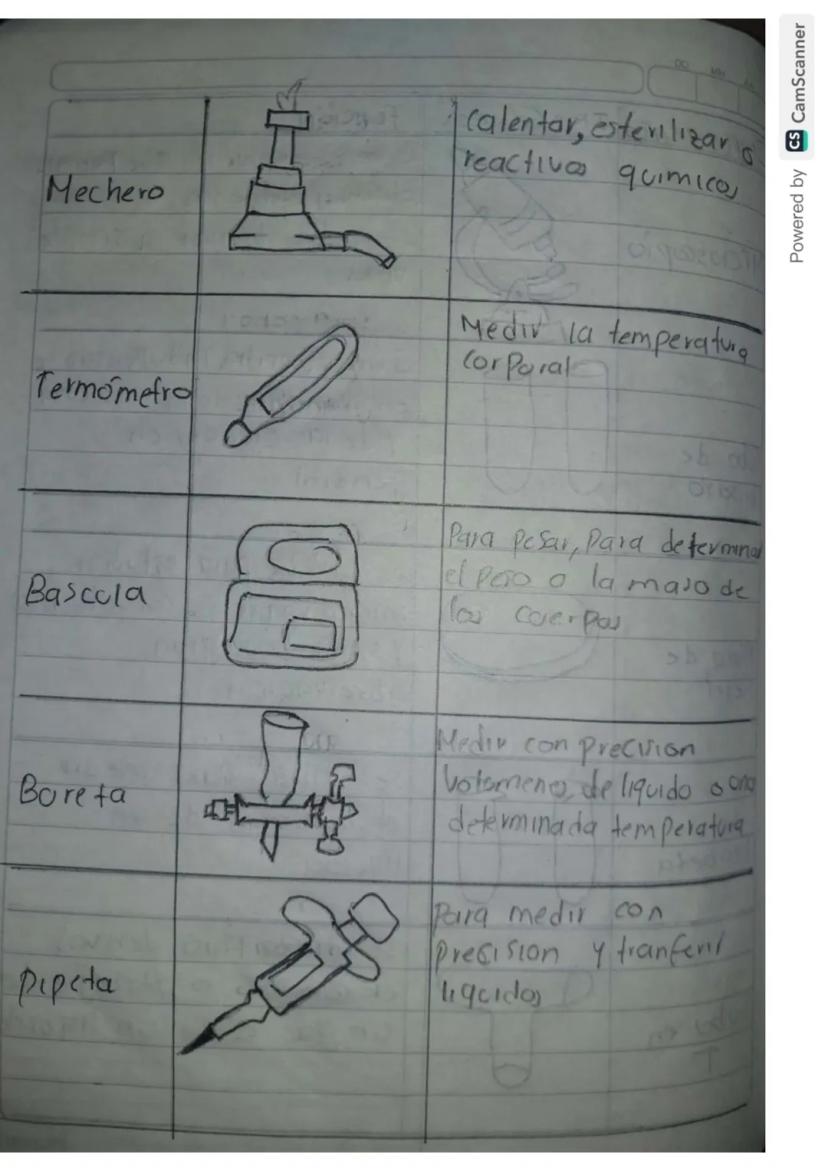 Mechero
calentar, esterilizar o
reactivos quimicos
Termómetro
Medir la temperatura
corporal
Bascula
Para pesar, para determinar
el peso o la masa de
los cuerpos
Bureta
Medir con precision
volumenes de liquido a una
determinada temperatura
Pipeta
Para medir con
precision y tranferir
liquidos
Powered by CS CamScanner